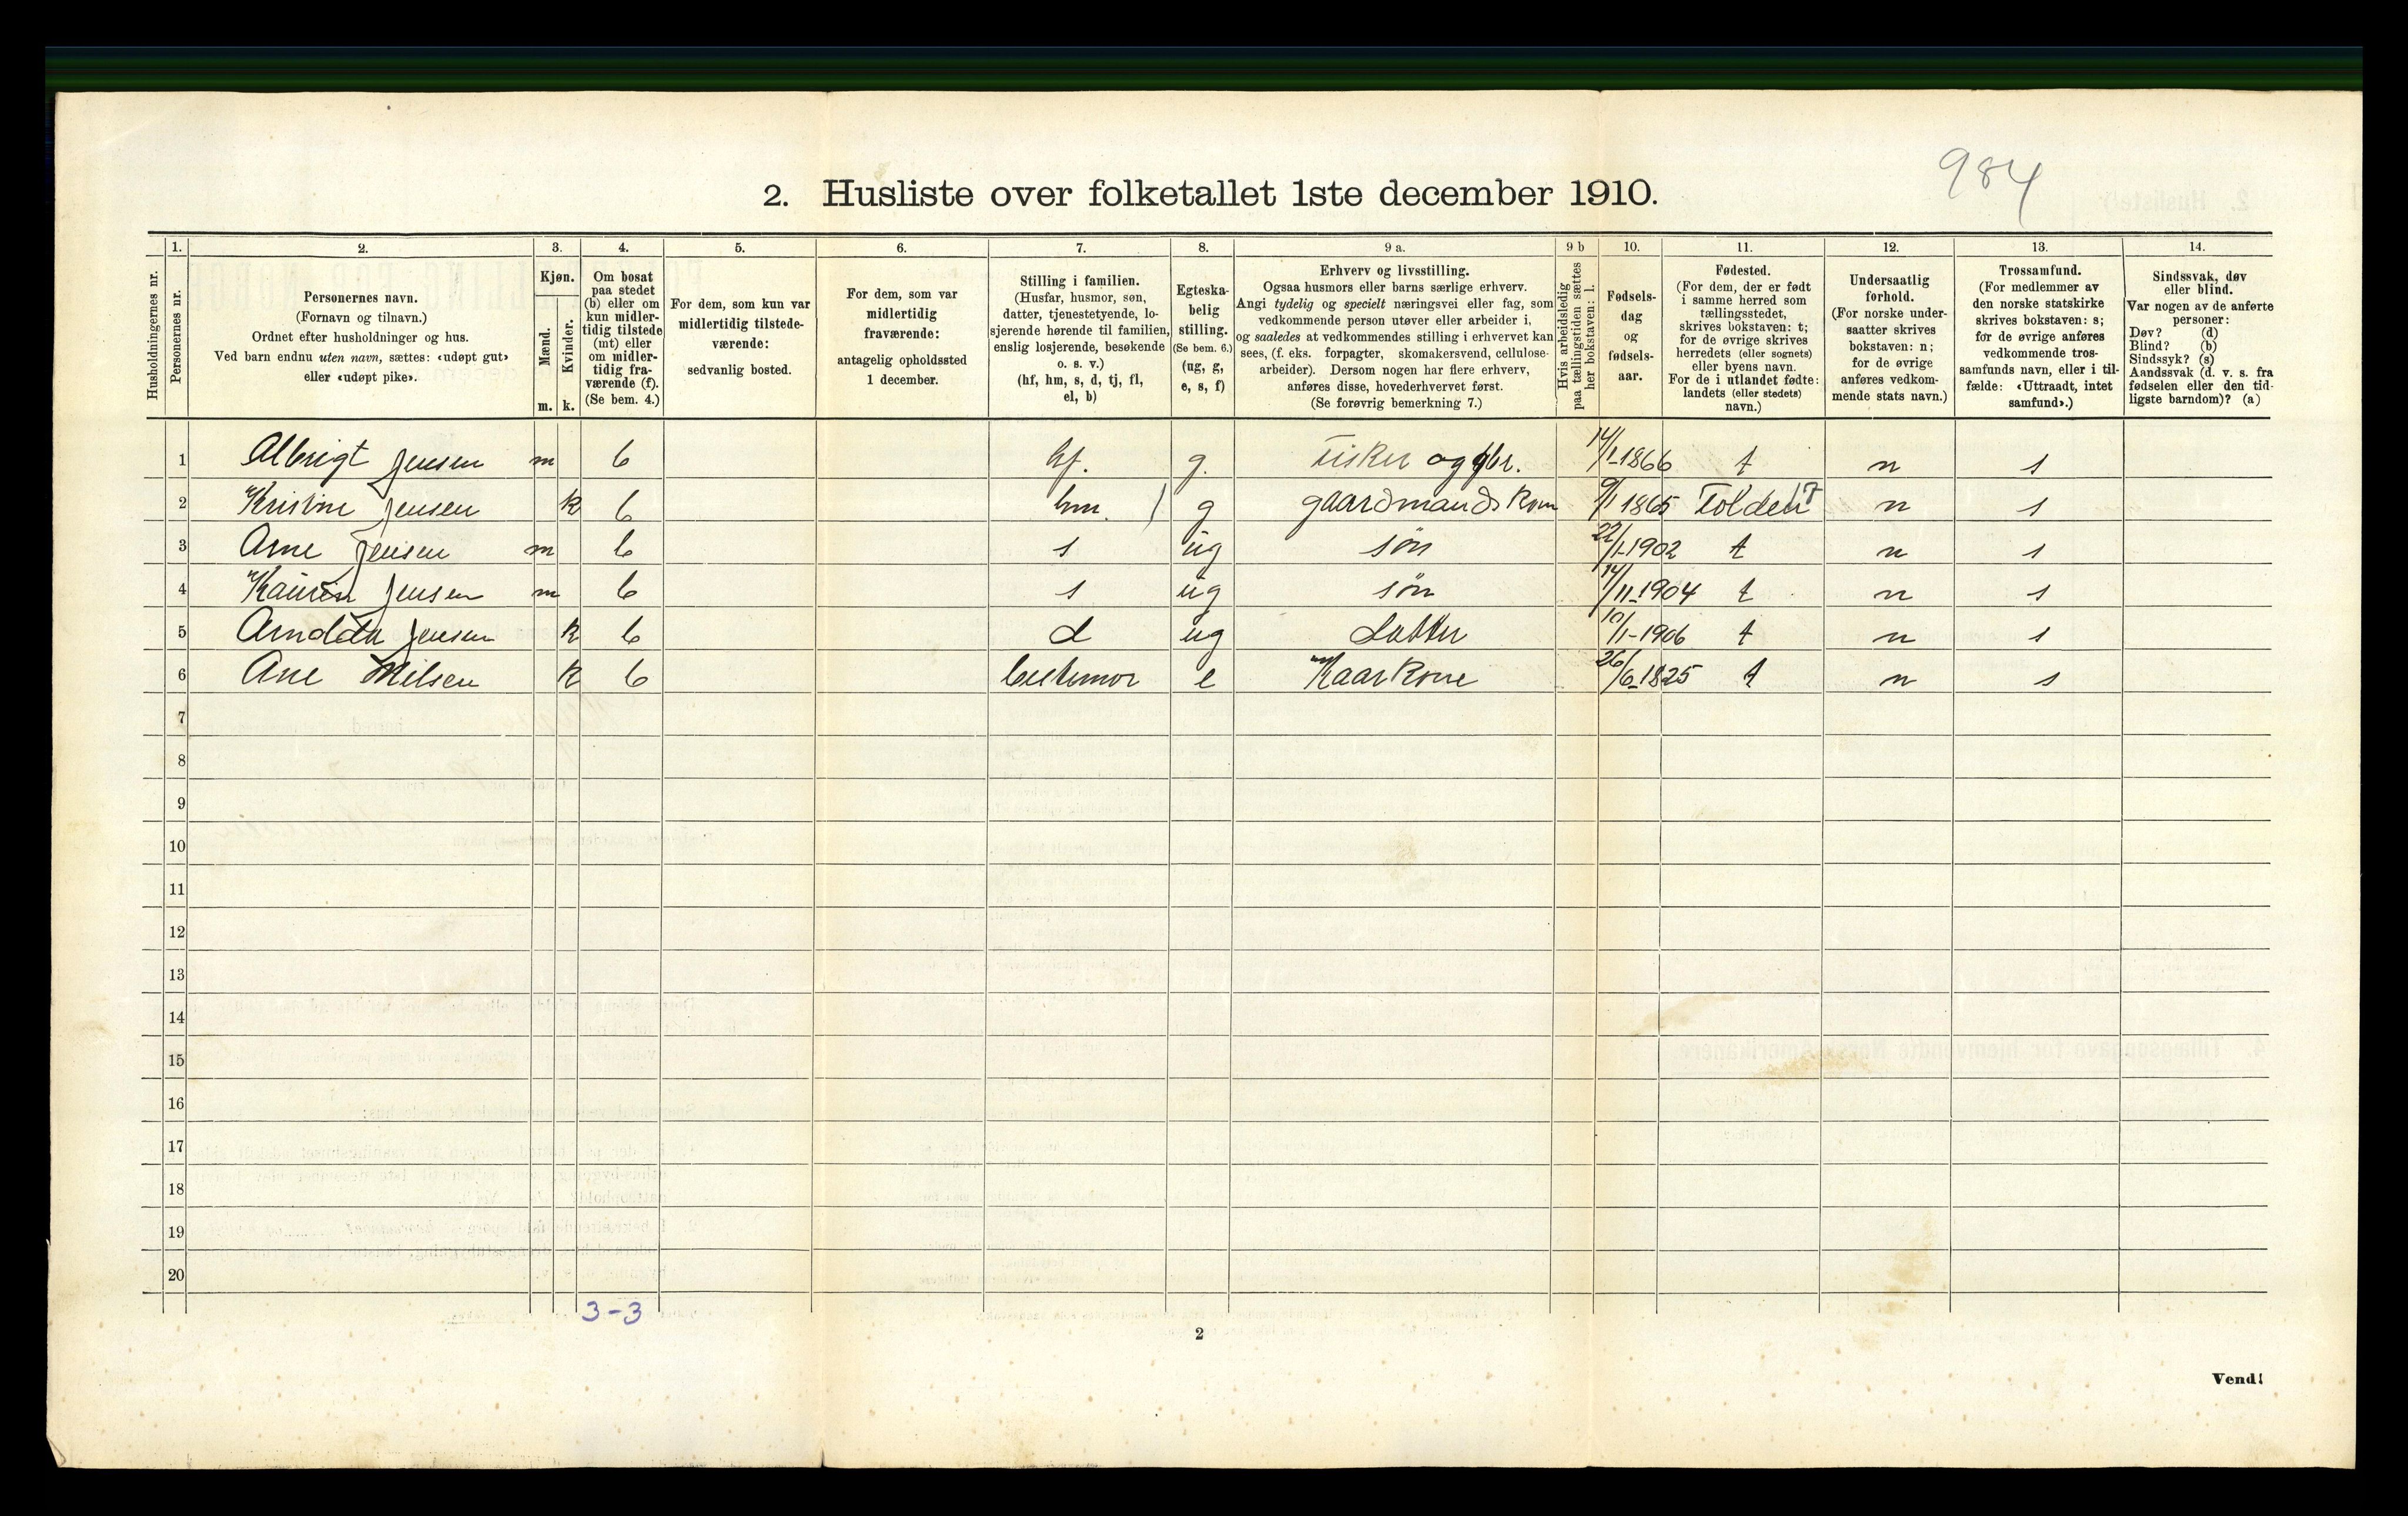 984
2. Husliste over folketallet 1ste december 1910.
1. 2. 3. 4. 5. 6. 7. 8. 9 a. 9 b 10. 11. 12. 13. 14.
Husholdningernes nr.
Personernes nr.
Personernes navn.
(Fornavn og tilnavn.)
Ordnet efter husholdninger og hus.
Ved barn endnu uten navn, sættes: «udøpt gut»
eller «udøpt pike».
Kjøn.
Mænd.
Kvinder.
m. k.
Om bosat
paa stedet
(b) eller om
kun midler-
tidig tilstede
(mt) eller
om midler-
tidig fra-
værende (f).
(Se bem. 4.)
For dem, som kun var
midlertidig tilstede-
værende:
sedvanlig bosted.
For dem, som var
midlertidig
fraværende:
antagelig opholdssted
1 december.
Stilling i familien.
(Husfar, husmor, søn,
datter, tjenestetyende, lo-
sjerende hørende til familien,
enslig losjerende, besøkende
o. s. v.)
(hf, hm, s, d, tj, fl,
el, b)
Egteska-
belig
stilling.
(Se bem. 6.)
(ug, g,
e, s, f)
Erhverv og livsstilling.
Ogsaa husmors eller barns særlige erhverv.
Angi tydelig og specielt næringsvei eller fag, som
vedkommende person utøver eller arbeider i,
og saaledes at vedkommendes stilling i erhvervet kan
sees, (f. eks. forpagter, skomakersvend, cellulose-
arbeider). Dersom nogen har flere erhverv,
anføres disse, hovederhvervet først.
(Se forøvrig bemerkning 7.)
Hvis arbeidsledig
paa tællingstiden sættes
her bokstaven: l.
Fødsels-
dag
og
fødsels-
aar.
Fødested.
(For dem, der er født
i samme herred som
tællingsstedet,
skrives bokstaven: t;
for de øvrige skrives
herredets (eller sognets)
eller byens navn.
For de i utlandet fødte:
landets (eller stedets)
navn.)
Undersaatlig
forhold.
(For norske under-
saatter skrives
bokstaven: n;
for de øvrige
anføres vedkom-
mende stats navn.)
Trossamfund.
(For medlemmer av
den norske statskirke
skrives bokstaven: s;
for de øvrige anføres
vedkommende tros-
samfunds navn, eller i til-
fælde: «Uttraadt, intet
samfund».)
Sindssvak, døv
eller blind.
Var nogen av de anførte
personer:
Døv? (d)
Blind? (b)
Sindssyk? (s)
Aandssvak (d. v. s. fra
fødselen eller den tid-
ligste barndom)? (a)
1 Albrigt Jensen m b hf. g. Fisker og gbr. 14/1-1866 t n s
2 Kristine Jensen k b hm. g gaardmandskone 9/1 1865 n s
3 Arne Jensen m b s ug søn 22/1-1902 t n s
4 Jensen m b s ug søn 14/11-1904 t n s
5 Jensen k b d ug datter 10/1-1906 t n s
6 Ane Nilsen k b bestemor e Kaarkone 26/6-1825 t n s
7
8
9
10
11
12
13
14
15
16
17
18
19
20
3-3
2
Vend!